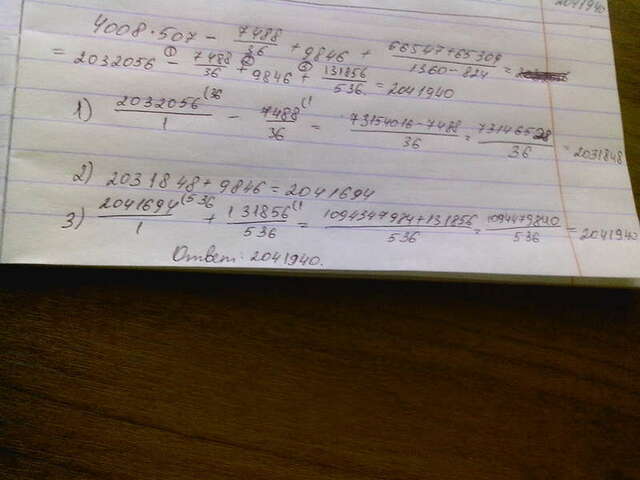 2041940
4008·507 - 7488/36 + 9846 + 66547+65309/1360-824 =
= 2032056 - 7488/36 + 9846 + 131856/536 = 2041940
1) 2032056(36/1 - 7488(1/36 = 73154016-7488/36 = 73146528/36 = 2031848
2) 2031848+9846=2041694
3) 2041694(536/1 + 131856(1/536 = 1094347984+131856/536 = 1094479840/536 = 2041940
Ответ: 2041940.